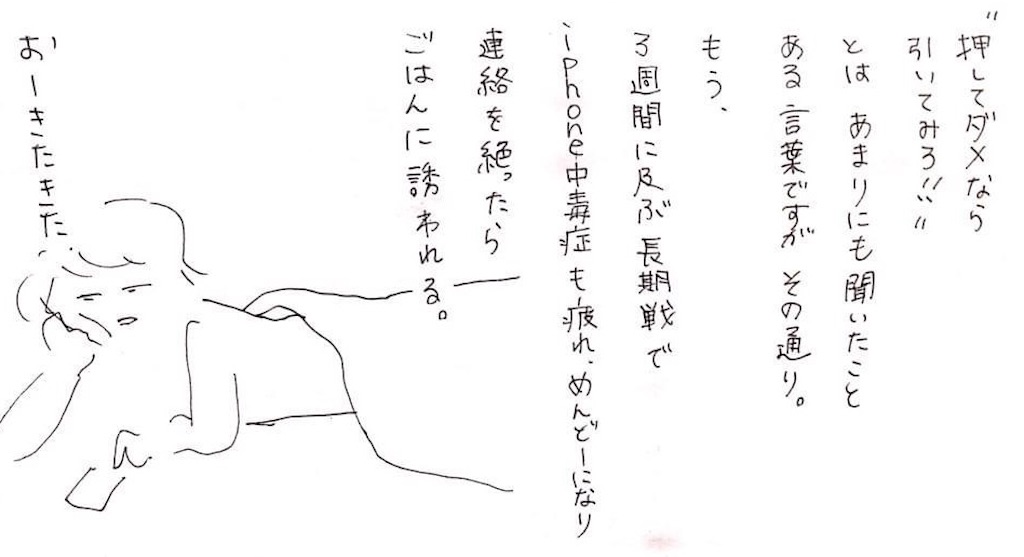 "押してダメなら
引いてみろ!!"
とは あまりにも聞いたこと
ある言葉ですが その通り。
もう、
3週間に及ぶ長期戦で
iphone中毒症も疲れ、めんどーになり
連絡を絶ったら
ごはんに誘われる。
おーきたきた